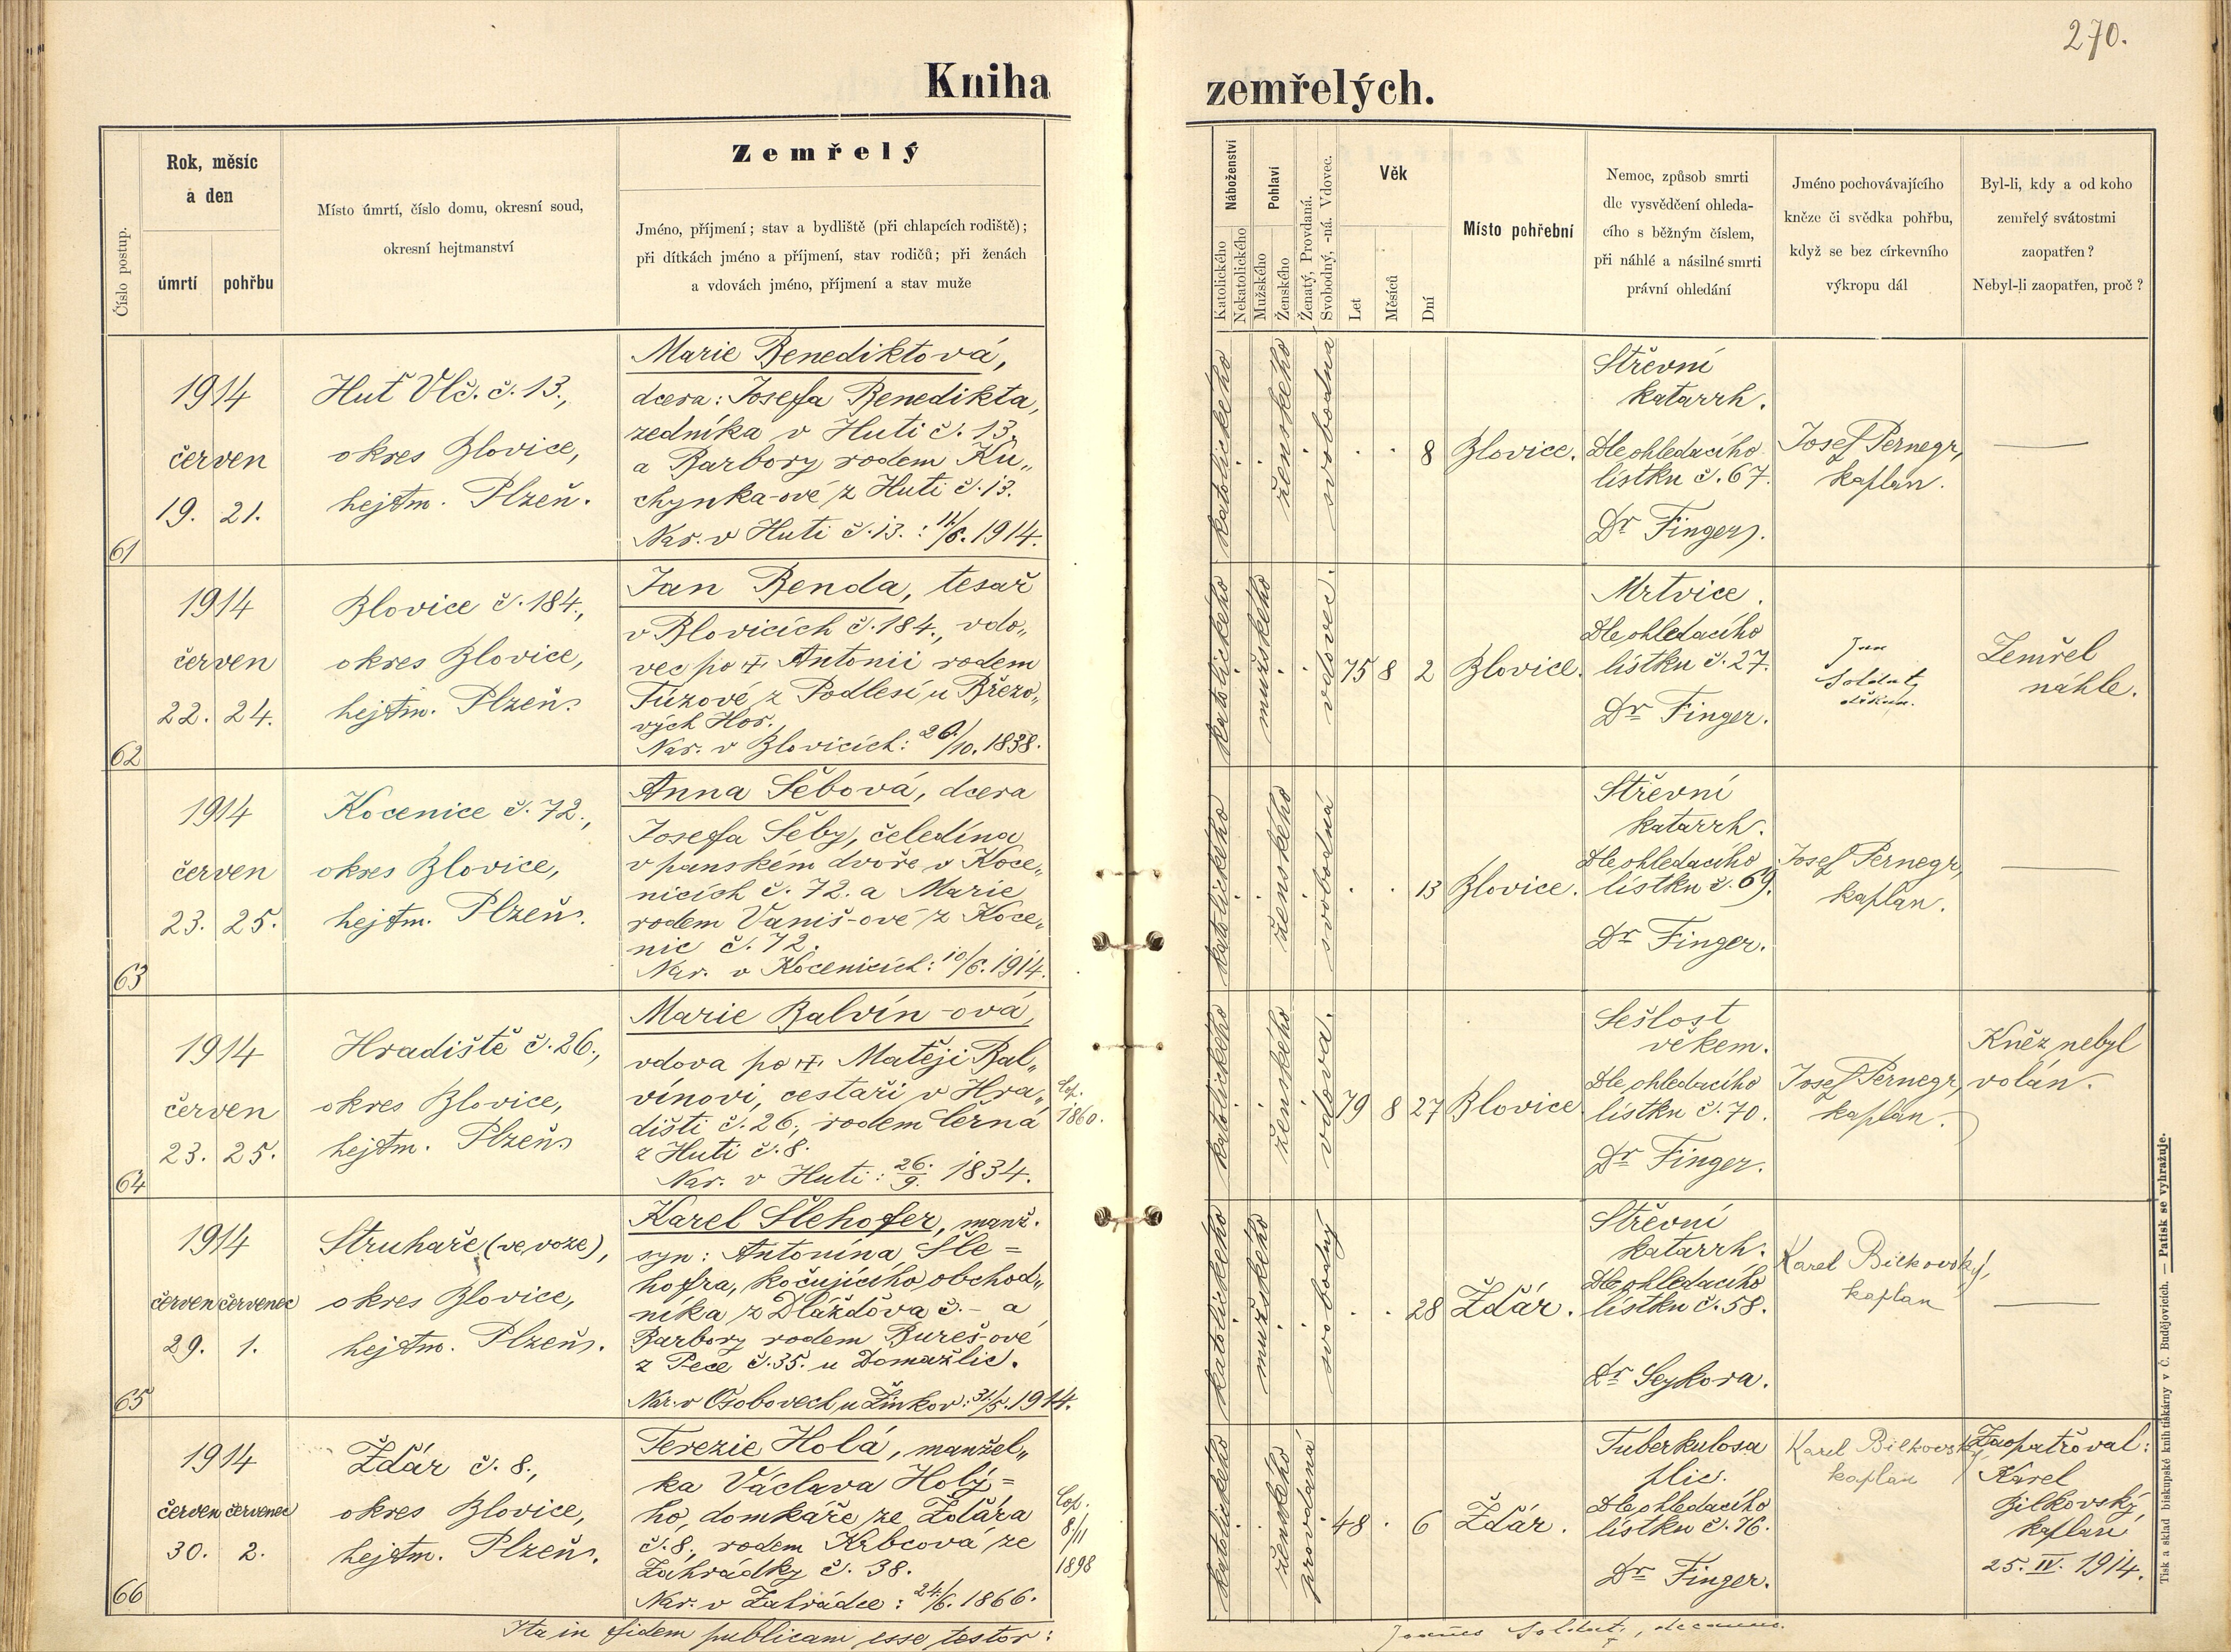 270.
Kniha
zemřelých.
Číslo postup.
Rok, měsíc
a den
úmrtí
pohřbu
Místo úmrtí, číslo domu, okresní soud,
okresní hejtmanství
Zemřelý
Jméno, příjmení; stav a bydliště (při chlapcích rodiště);
při dítkách jméno a příjmení, stav rodičů; při ženách
a vdovách jméno, příjmení a stav muže
Náboženství
Katolického
Nekatolického
Pohlaví
Mužského
Ženského
Ženatý, Provdaná.
Svobodný, -ná. Vdovec.
Věk
Let
Měsíců
Dní
Místo pohřební
Nemoc, způsob smrti
dle vysvědčení ohleda-
cího s běžným číslem,
při náhlé a násilné smrti
právní ohledání
Jméno pochovávajícího
kněze či svědka pohřbu,
když se bez církevního
výkropu dál
Byl-li, kdy a od koho
zemřelý svátostmi
zaopatřen?
Nebyl-li zaopatřen, proč?
61
1914
červen
19. 21.
Huť Vlč. č. 13.,
okres Blovice,
hejtm. Plzeň.
Marie Benediktová,
dcera: Josefa Benedikta,
zedníka v Huti č. 13.
a Barbory rodem Ku„
chynka-ové z Huti č. 13.
Nar. v Huti č. 13. : 12/6. 1914.
katolického
ženského
svobodna
8
Blovice.
Střevní
katarrh.
Dle ohledacího
lístku č. 67.
Dr Finger.
Josef Pernegr,
kaplan.
—
62
1914
červen
22. 24.
Blovice č. 184.,
okres Blovice,
hejtm. Plzeň.
Jan Benda, tesař
v Blovicích č. 184., vdo„
vec po † Antonii rodem
Túzové z Podlesí u Březo„
vých Hor.
Nar. v Blovicích: 20/10. 1838.
katolického
mužského
vdovec.
75 8 2
Blovice.
Mrtvice.
Dle ohledacího
lístku č. 27.
Dr Finger.
Jan
Soldát,
děkan.
Zemřel
náhle.
63
1914
červen
23. 25.
Kocenice č. 72.,
okres Blovice,
hejtm. Plzeň.
Anna Šebová, dcera
Josefa Šeby, čeledína
v panském dvoře v Koce„
nicích č. 72. a Marie
rodem Vaniš-ové z Koce„
nic č. 72.
Nar. v Kocenicích: 10/6. 1914.
katolického
ženského
svobodná
13
Blovice.
Střevní
katarrh.
Dle ohledacího
lístku č. 69.
Dr Finger.
Josef Pernegr,
kaplan.
—
64
1914
červen
23. 25.
Hradiště č. 26.,
okres Blovice,
hejtm. Plzeň
Marie Balvín-ová,
vdova po † Matěji Bal„
vínovi, cestaři v Hra„
dišti č. 26., rodem Černá
z Huti č. 8.
Nar. v Huti: 26./9. 1834.
Cop.
1860.
katolického
ženského
vdova.
79 8 27
Blovice
Sešlost
věkem.
Dle ohledacího
lístku č. 70.
Dr Finger.
Josef Pernegr,
kaplan.
Kněz nebyl
volán.
65
1914
červen červenec
29. 1.
Struhaře (ve voze),
okres Blovice,
hejtm. Plzeň.
Karel Šlehofer, manž.
syn: Antonína Šle=
hofra, kočujícího obchod„
níka z Dlážďova č. – a
Barbory rodem Bureš-ové
z Pece č. 35. u Domažlic.
Nar. v Osobovech u Žinkov: 31/5. 1914.
katolického
mužského
svobodný
28
Žďár.
Střevní
katarrh.
Dle ohledacího
lístku č. 58.
Dr Seykora.
Karel Bilkovský,
kaplan
—
66
1914
červen červenec
30. 2.
Žďár č. 8.,
okres Blovice,
hejtm. Plzeň.
Terezie Holá, manžel„
ka Václava Holý=
ho, domkáře ze Žďára
č. 8., rodem Krbcová ze
Zahrádky č. 38.
Nar. v Zahrádce: 24./6. 1866.
Cop.
8./11
1898
katolického
ženského
provdaná
48 . 6
Žďár.
Tuberkulosa
plic.
Dle ohledacího
lístku č. 76.
Dr Finger.
Karel Bilkovský
kaplan
Zaopatřoval:
Karel
Bilkovský,
kaplan
25. IV. 1914.
Ita in fidem publicam esse testor:
Joannes Soldát, decanus.
Tisk a sklad biskupské knihtiskárny v Č. Budějovicích. — Patisk se vyhražuje.